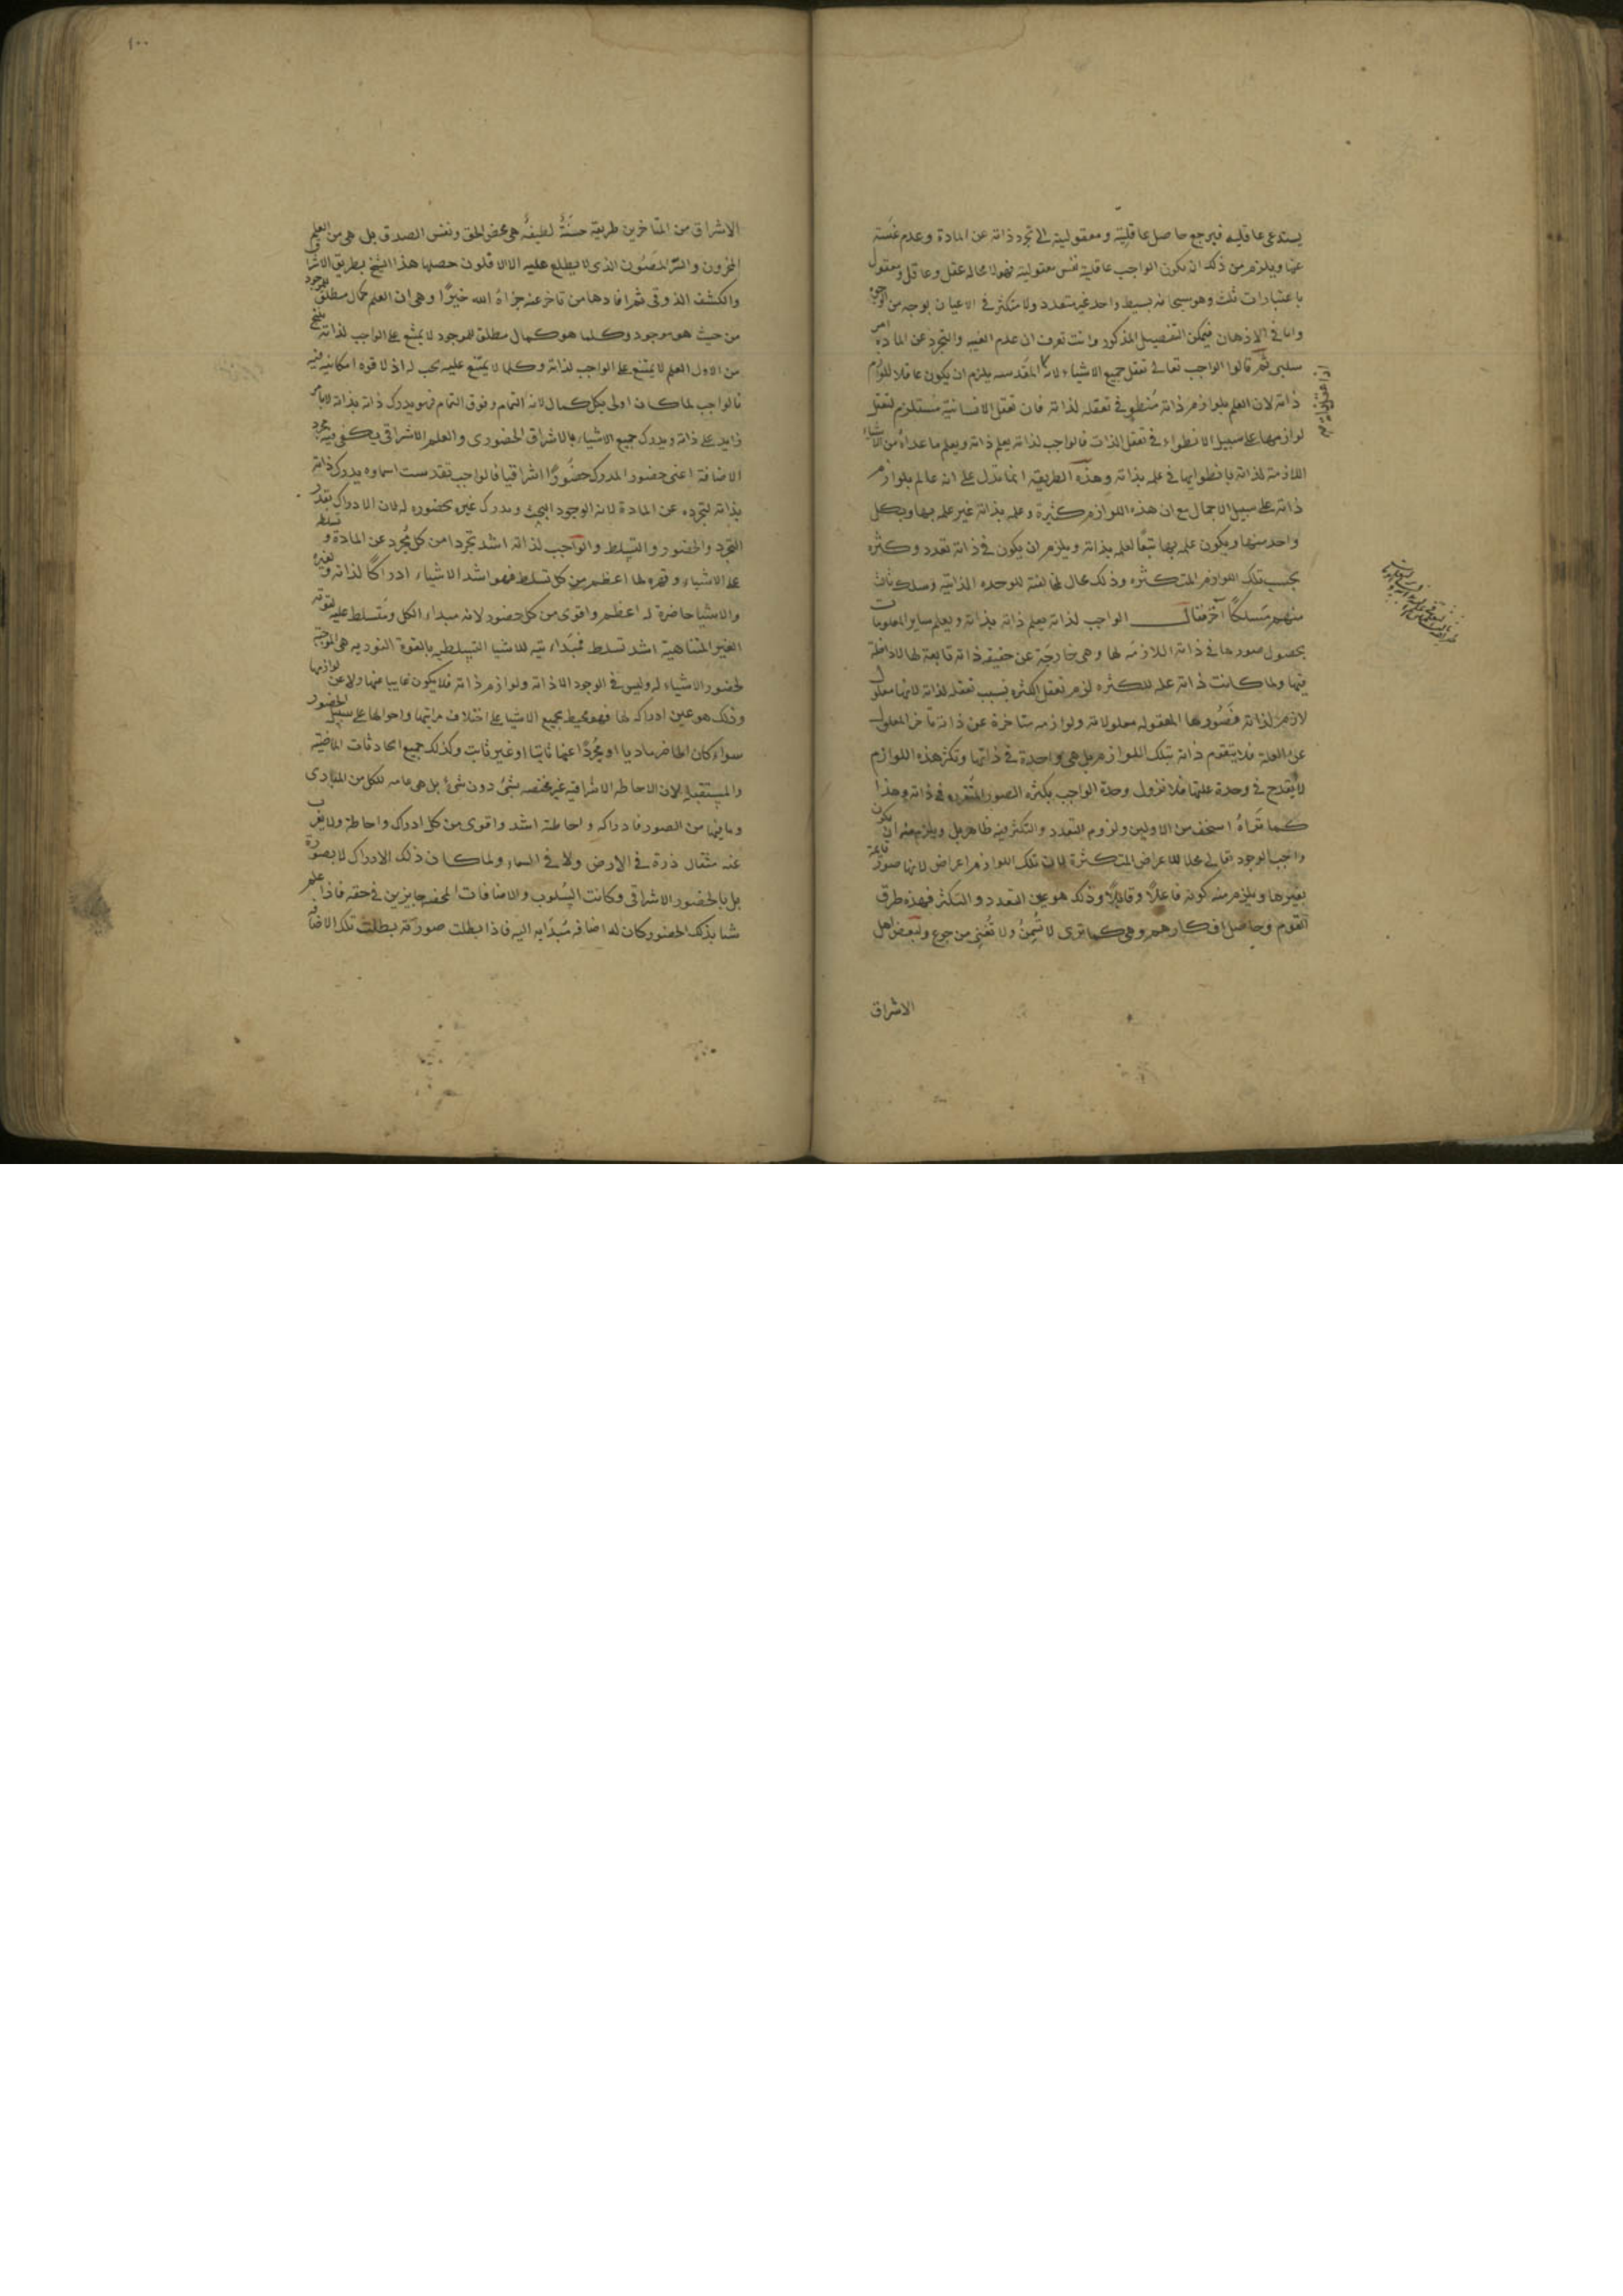 يستدعى عاقليه فيرجع حاصل عاقليته ومعقوليته الى تجرد ذاته عن المادة وعدم غيبته
عنها ويلزم من ذلك ان يكون الواجب عاقليته نفس معقوليته فهو لا محاله عقل وعاقل ومعقول
باعتبارات ثلث وهو سبحانه بسيط واحد غير متعدد ولا متكثر فى الاعيان بوجه من الوجوه
واما فى الاذهان فيمكن التفصيل المذكور وانت تعرف ان عدم الغيبه والتجرد عن المادة امر
سلبى ثم قالوا الواجب تعالى تعقل جميع الاشياء لانه يلزم ان يكون عاقلا للوازم
ذاته لان العلم بلوازم ذاته منطو فى تعقله لذاته فان تعقل الانسانية مستلزم لتعقل
لوازمها على سبيل الانطواء فى تعقل الذات فالواجب لذاته يعلم ذاته ويعلم ما عداه من الاشياء
اللازمة لذاته بانطوايها فى علمه بذاته وهذه الطريقة انما تدل على انه عالم بلوازم
ذاته على سبيل الاجمال مع ان هذه اللوازم كثيرة وعلمه بذاته غير علمه بها وبكل
واحد منها ويكون علمه بها تبعا لعلمه بذاته ويلزم ان يكون فى ذاته تعدد وكثره
بحسب تلك اللوازم المتكثره وذلك محال لمخالفته للوحده الذاتية وسلك ثالث
منهم مسلكا آخر فقال الواجب لذاته يعلم ذاته بذاته ويعلم ساير المعلومات
بحصول صورها فى ذاته اللازمه لها وهى خارجة عن حقيقة ذاته تابعة لها لا داخلة
فيها ولما كانت ذاته علة للكثره لزم تعقل الكثره بسبب تعقله لذاته لانها معلول
لازم لذاته فصورها المعقوله معلولاته ولوازمه متاخرة عن ذاته تاخر المعلول
عن العلة فلا يتقوم ذاته بتلك اللوازم بل هى واحدة فى ذاتها وتكثر هذه اللوازم
لا يقدح فى وحدة علتها فلا تزول وحدة الواجب بكثره الصور المتقرره فى ذاته وهذا
كما تراه اسخف من الاولين ولزوم التعدد والتكثر فيه ظاهر بل ويلزم منه ان يكون
واجب الوجود تعالى محلا للاعراض المتكثرة فان تلك اللوازم اعراض لانها صور قايمة
بغيرها ويلزم منه كونه فاعلا وقابلا وذلك هو عين التعدد والتكثر فهذه طرق
القوم وحاصل افكارهم وهى كما ترى لا تسمن ولا تغنى من جوع ولبعض اهل
الاشراق
الاشراق من المتاخرين طريقة حسنة لطيفة هى محض الحق ونفس الصدق بل هى من العلم
المخزون والسر المصون الذى لا يطلع عليه الا الاقلون حصلها هذا الشيخ بطريق الاشراق
والكشف الذوقى ثم افادها من تاخر عنه جزاه الله خيرا وهى ان العلم كمال مطلق للوجود
من حيث هو موجود وكلما هو كمال مطلق للموجود لا يمتنع على الواجب لذاته ينتج
من الاول العلم لا يمتنع على الواجب لذاته وكلما لا يمتنع عليه يجب له اذ لا قوه امكانيه فيه
فالواجب لما كان اولى بكل كمال لانه التمام وفوق التمام فهو يدرك ذاته بذاته لا بامر
زايد على ذاته ويدرك جميع الاشياء بالاشراق الحضورى والعلم الاشراقى يكفى فيه مجرد
الاضافة اعنى حضور المدرك حضورا اشراقيا فالواجب تقدست اسماوه يدرك ذاته
بذاته لتجرده عن المادة لانه الوجود البحت ويدرك غيره بحضوره له لان الادراك بقدر
التجرد والحضور والتسلط والواجب لذاته اشد تجردا من كل مجرد عن المادة و تسلطه
على الاشياء وقهره لها اعظم من كل تسلط فهو اشد الاشياء ادراكا لذاته ولغيره
والاشيا حاضرة له اعظم واقوى من كل حضور لانه مبداء الكل ومتسلط عليه لقوته
الغير المتناهية اشد تسلط فمبدائيته للاشيا التسلطيه بالقوة النوريه هى الموجبة
لحضور الاشياء له وليس فى الوجود الا ذاته ولوازم ذاته فلا يكون غايبا عنها ولا عن لوازمها
وذلك هو عين ادراكه لها فهو محيط بجميع الاشيا على اختلاف مراتبها واحوالها على سبيل الحضور
سواء كان الحاضر ماديا او مجردا عنها ثابتا او غير ثابت وكذلك جميع الحادثات الماضية
والمستقبلة لان الاحاطه الاشراقية غير مختصه بشئ دون شئ بل هى عامه للكل من المبادى
وما فيها من الصور فادراكه واحاطته اشد واقوى من كل ادراك واحاطة ولا يعزب
عنه مثقال ذرة فى الارض ولا فى السماء ولما كان ذلك الادراك لا بصورة
بل بالحضور الاشراقى وكانت السلوب والاضافات المحضه جايزين فى حقه فاذا علم
شيا بذلك الحضور كان له اضافه مبدايه اليه فاذا بطلت صورته بطلت تلك الاضافة